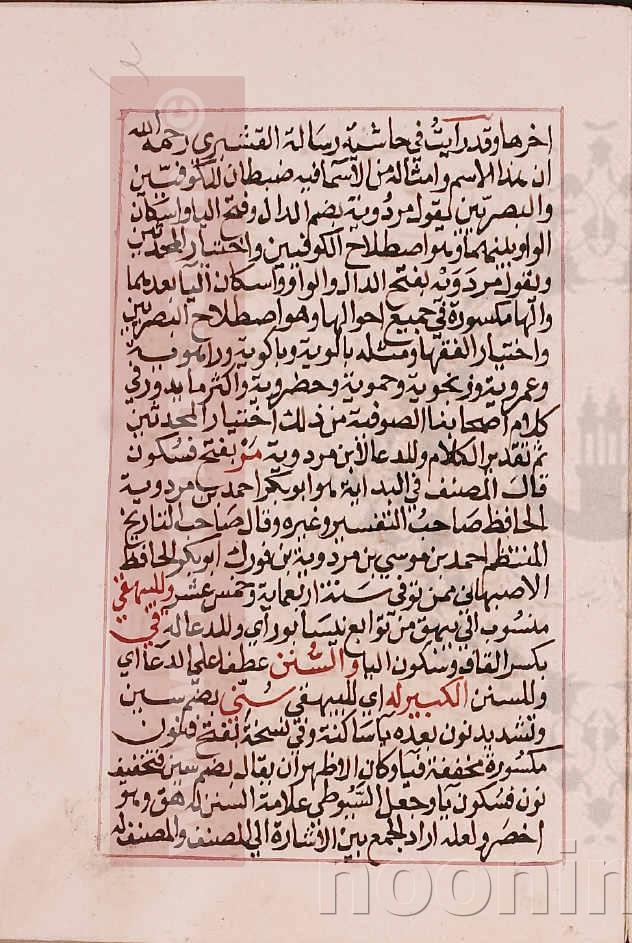 اخرها وقد رايتُ في حاشية رسالة القشيري رحمه الله
ان هذا الاسم وامثاله من الاسما فيه ضبطان للكوفيين
والبصريين يقول مردُويَة بضم الدال وفتح اليا واسكان
الواو بينهما وهو اصطلاح الكوفيين واختيار المحدثين
ويقول مردَوَيْه بفتح الدال والواو واسكان اليا بعدهما
والها مكسورة في جميع احوالها وهو اصطلاح البصريين
واختيار الفقها ومثله بالوية وباكوية وراهوية
وعمروية وزنجوية وحموية وحضروية واكثر ما يدور في
كلام اصحابنا الصوفية من ذلك اختيار المحدثين
ثم تقدير الكلام وللدعا لابن مردوية مَرْ بفتح فسكون
قال المصنف في البداية هو ابو بكر احمد بن مردوية
الحافظ صاحبُ التفسير وغيره وقال صاحب التاريخ
المنتظم احمد بن موسي بن مردوية بن فورك ابو بكر الحافظ
الاصبهاني ممن توفي سنة اربعماية وخمس عشر وللبيهقي
منسوب الي بيهق من توابع نيسابور اي وللدعا له قي
بكسر القاف وسكون اليا والسُّنن عطفا علي الدعا اي
وللسنن الكبير له اي للبيهقي سُنّى بضم سين
وتشديد نون بعده يا ساكنة وفي نسخة بفتح فنون
مكسورة مخففة فيا وكان الاظهر ان يقال بضم سين فتخفيف
نون فسكون يا وجعل السيوطي علامة السنن له هق وهو
اخصر ولعله اراد الجمع بين الاشارة الي المصنف والمصنف له
noonin